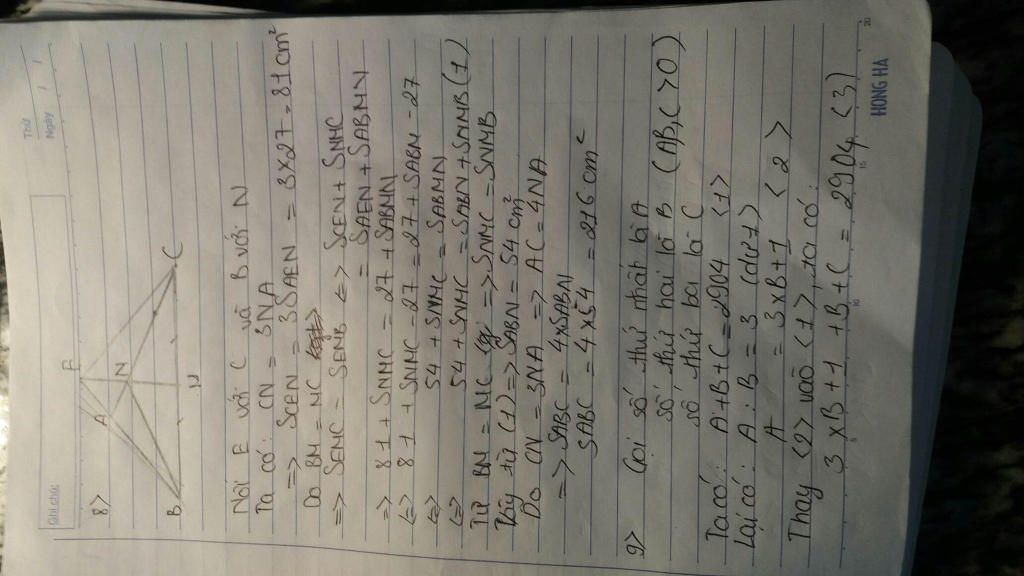 Thứ
Ngày
Ghi chú:
8>
E
A
N
B
M
C
Nối E với C và B với N
Ta có: CN = 3NA
=> SCEN = 3SAEN = 3x27 = 81cm²
Do BM = MC
=> SEMC = SEMB <=> SCEN + SNMC
= SAEN + SABMN
=> 81 + SNMC = 27 + SABMN
<=> 81 + SNMC - 27 = 27 + SABMN - 27
<=> 54 + SNMC = SABMN
<=> 54 + SNMC = SABN + SNMB (1)
Từ BM = MC => SNMC = SNMB
Vậy từ (1) => SABN = 54 cm²
Do CN = 3NA => AC = 4NA
=> SABC = 4xSABN
SABC = 4x54 = 216 cm²
9> Gọi số thứ nhất là A
số thứ hai là B (A,B,C > 0)
số thứ ba là C
Ta có: A+B+C = 2904 <1>
Lại có: A : B = 3 (dư 1)
A = 3xB+1 <2>
Thay <2> vào <1>, ta có:
3xB+1+B+C = 2904 <3>
5
10
15
20
HONG HA